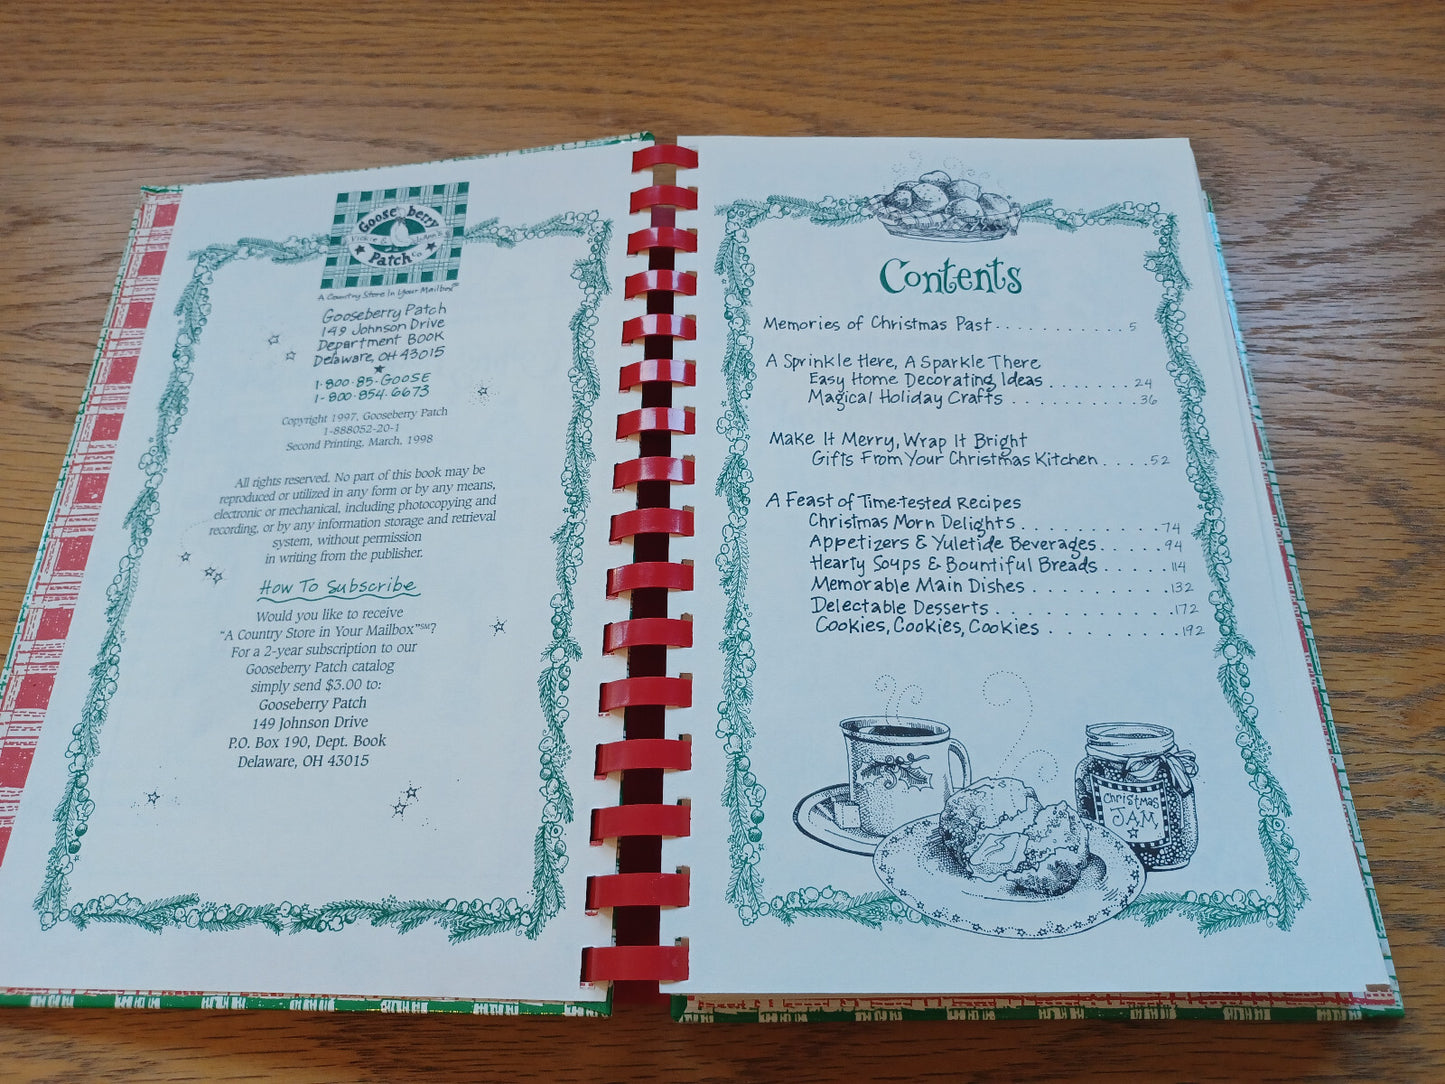 Gooseberry
Vickie &
Patch Co.
A Country Store In Your Mailbox℠
Gooseberry Patch
149 Johnson Drive
Department Book
Delaware, OH 43015
1·800·85·GOOSE
1·800·854·6673
Copyright 1997, Gooseberry Patch
1-888052-20-1
Second Printing, March, 1998
All rights reserved. No part of this book may be
reproduced or utilized in any form or by any means,
electronic or mechanical, including photocopying and
recording, or by any information storage and retrieval
system, without permission
in writing from the publisher.
How To Subscribe
Would you like to receive
"A Country Store in Your Mailbox"℠?
For a 2-year subscription to our
Gooseberry Patch catalog
simply send $3.00 to:
Gooseberry Patch
149 Johnson Drive
P.O. Box 190, Dept. Book
Delaware, OH 43015
Contents
Memories of Christmas Past . . . . . . . . . . . . 5
A Sprinkle Here, A Sparkle There
Easy Home Decorating Ideas . . . . . . . . 24
Magical Holiday Crafts . . . . . . . . . . . . . 36
Make It Merry, Wrap It Bright
Gifts From Your Christmas Kitchen . . . . 52
A Feast of Time-tested Recipes
Christmas Morn Delights . . . . . . . . . . . . 74
Appetizers & Yuletide Beverages . . . . . 94
Hearty Soups & Bountiful Breads . . . . . 114
Memorable Main Dishes . . . . . . . . . . . . 132
Delectable Desserts . . . . . . . . . . . . . . . 172
Cookies, Cookies, Cookies . . . . . . . . . . 192
Christmas
JAM